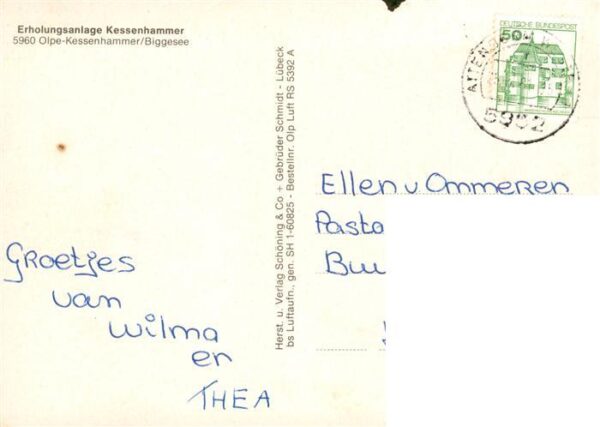 Erholungsanlage Kessenhammer
5960 Olpe-Kessenhammer/Biggesee
Groetjes
van
Wilma
en
THEA
Herst. u. Verlag Schöning & Co + Gebrüder Schmidt - Lübeck
bs Luftaufn., gen. SH 1-60825 - Bestellnr. Olp Luft RS 5392 A
DEUTSCHE BUNDESPOST
50
5952
Ellen v Ommeren
Pasto
Buu